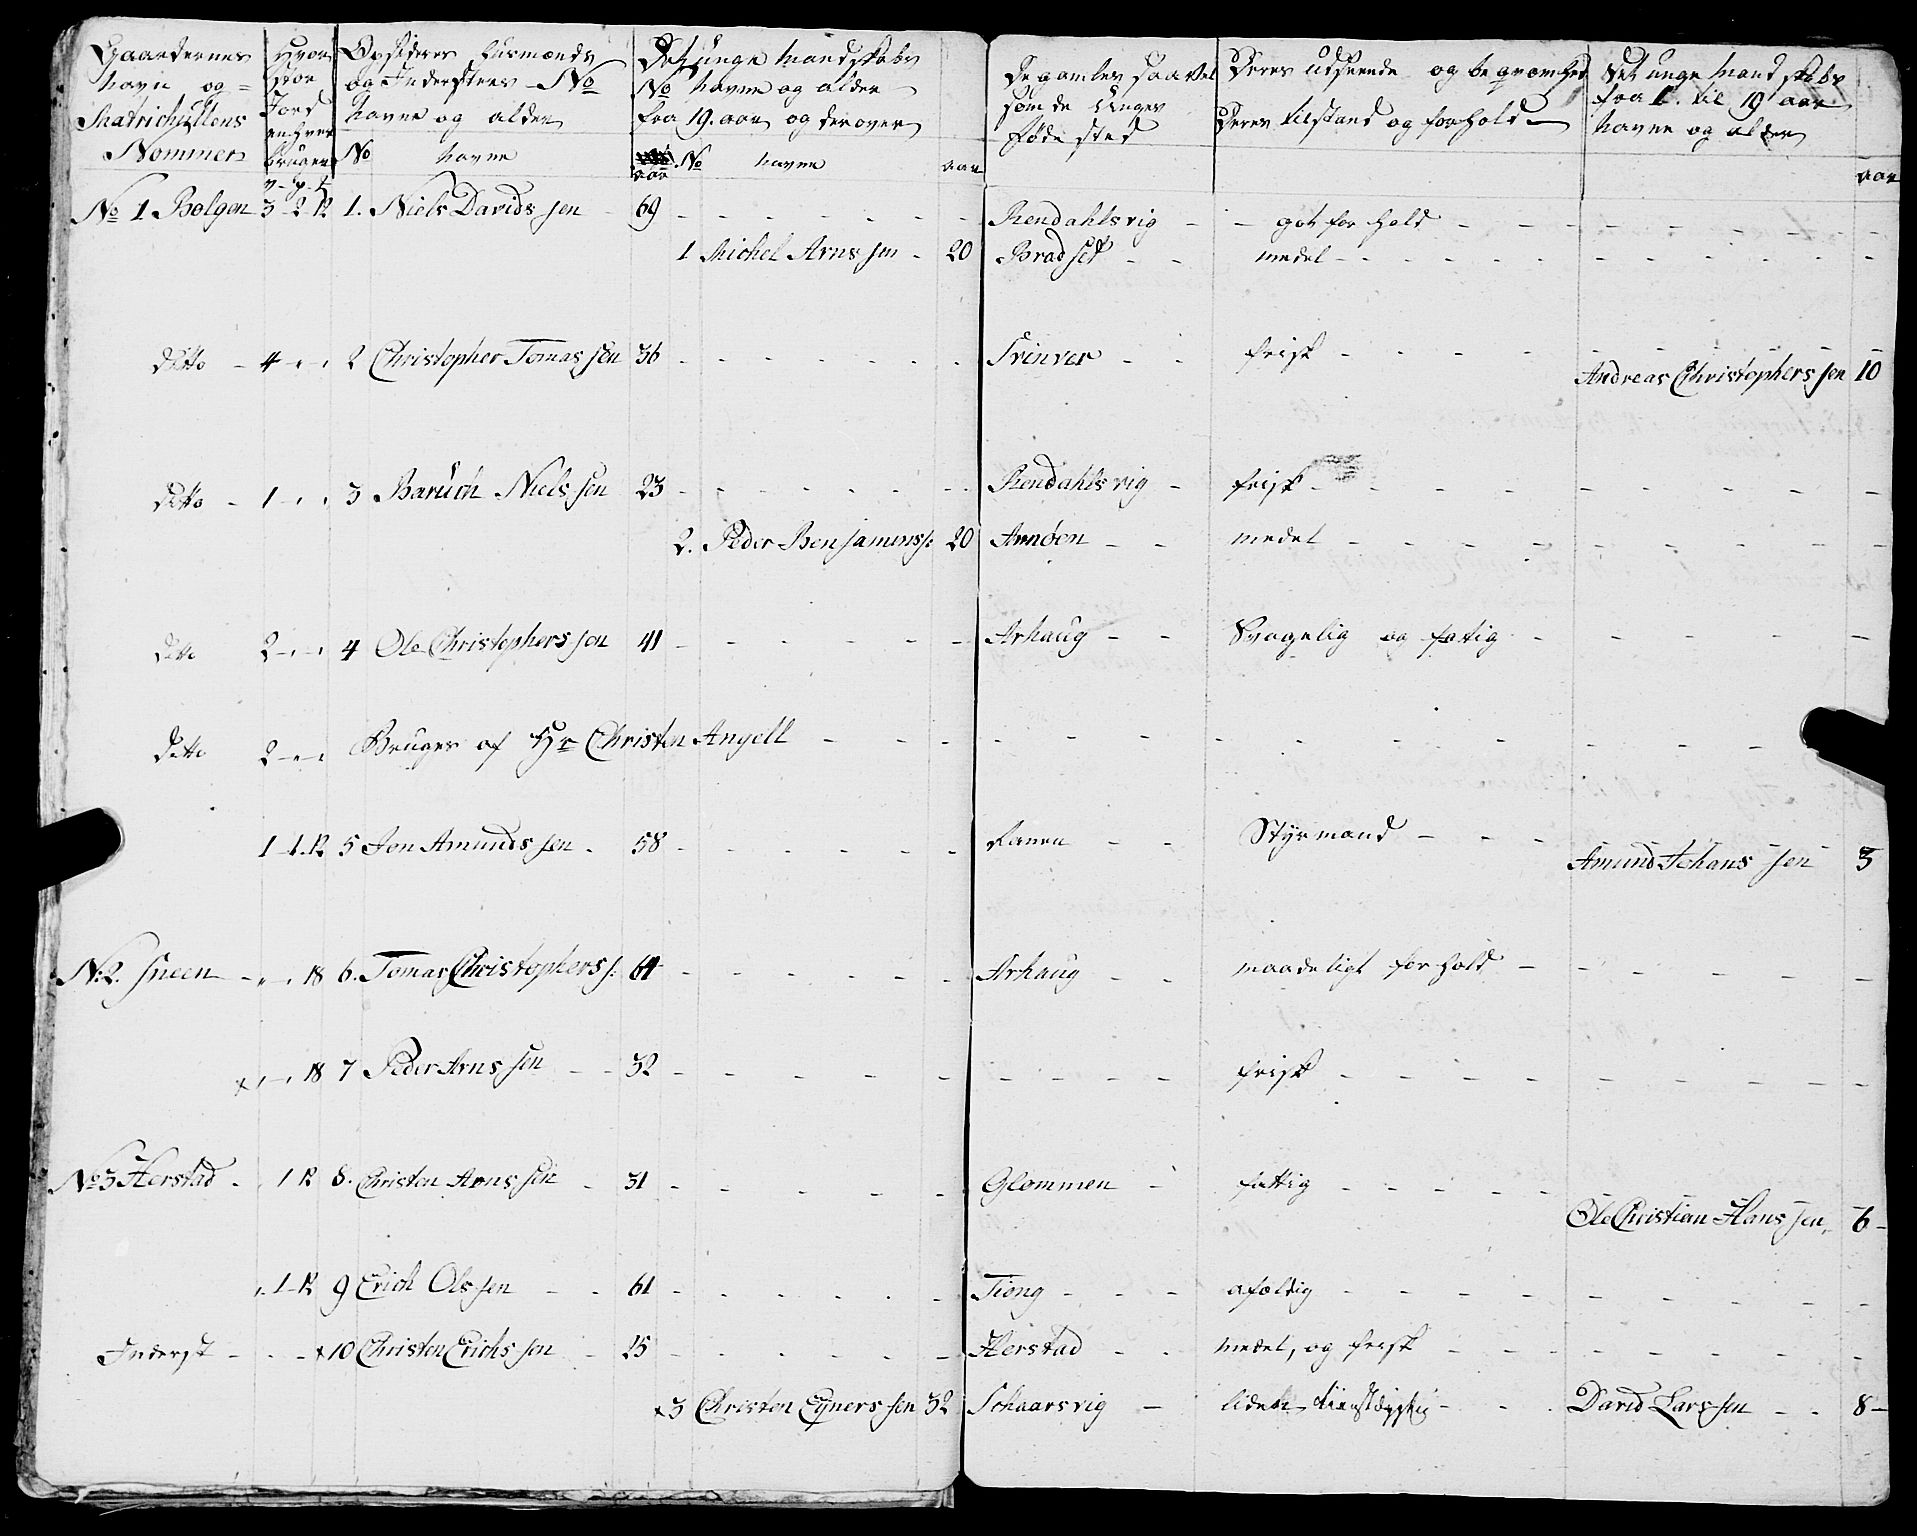 Gaardernes
Navn og
Matrichullens
Nommer
Hvor
stor
Jord
en hver
bruger
v - p - £
Opsideres Husmænds
og Indersters No
Navne og alder
No Navne
aar
Det unge Mandskabs
No Navne og alder
fra 19. aar og derover
No Navne aar
De gamles saavel
som de Unges
føde sted
Deres udseende og beqvemhed
Deres tilstand og forhold
Det unge Mandskabs
fra 1. til 19 aar
Navne og alder
aar
No 1 Bolgen 3 - 2 - 12 1. Niels Davidssen - 69 - - - Rendahlsvig - - got forhold - - -
1 Michel Arnssen - 20 Bradset - - medel - - -
Ditto - 4 - „ - „ 2 Christopher Tomassen 36 - - - Svinver - - frisk - - -
Andreas Christopherssen 10
Ditto - 1 - „ - „ 3 Baruch Nielssen 23 - - - Rendahlsvig - frisk - - -
2. Peder Benjamins s: 20 Arnøen - - medel - - -
Ditto 2 - „ - „ 4 Ole Christopherssen 41 - - - Arhaug - - Svagelig og fatig - - -
Ditto 2 - „ - „ Bruges af Hr Christen Angell - - -
1 - 1 - 12 5 Jon Amundssen - 58 - - - Ranen - - Styrmand - - -
Amund Johanssen 3
N: 2. Sneen - „ - „ 18 6. Tomas Christophers s: 64 - - - Arhaug - - maadeligt forhold - - -
x „ - „ 18 7 Peder Arnssen - - 32 - - - frisk - - -
No 3 Herstad - 1 12 8. Christen Arnssen - 31 - - - Glommen - fattig - - -
Ole Christian Hanssen 6 -
„ 1 - 12 9 Erich Olssen - - 61 - - - Tiong - - - afældig - - -
Inderst - - - x 10 Christen Erichssen - 25 - - - Herstad - - medel, og frisk - - -
x 3 Christen Eynerssen 32 Schaarsvig - liden tienstdygtig - - - David Larssen - - 8 -